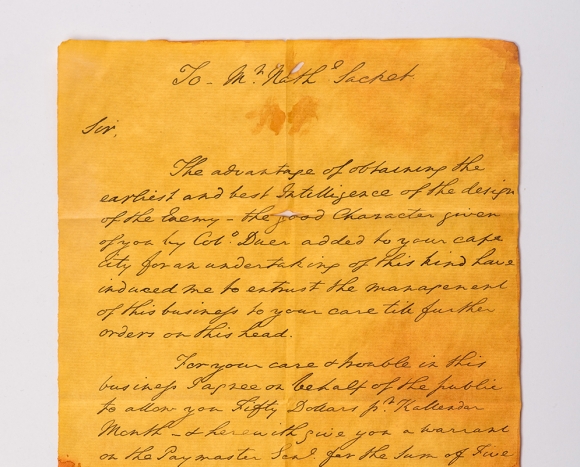 To - Mr. Nathl Sacket
Sir,
The advantage of obtaining the
earliest and best Intelligence of the design
of the Enemy - the good Character given
of you by Colo. Duer added to your capa
city for an undertaking of this kind have
induced me to entrust the management
of this business to your care till further
orders on this head.
For your care & trouble in this
business I agree on behalf of the public
to allow you Fifty Dollars pr. Kallendar
Month - & herewith give you a warrant
on the Paymaster Genl. for the sum of Five